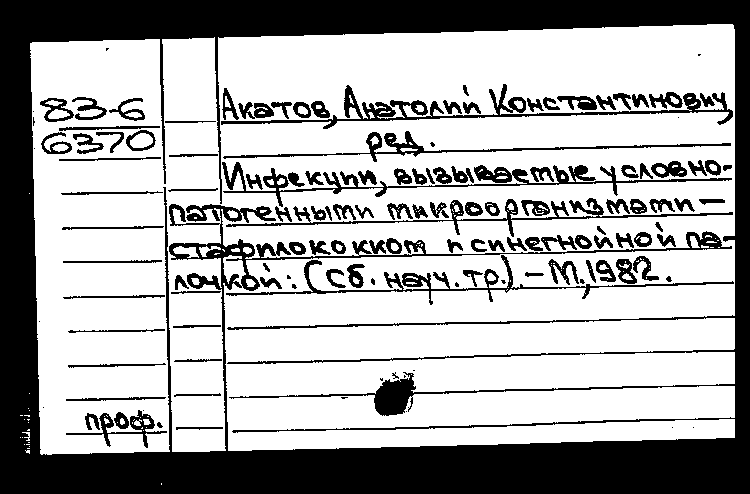 83-6
6370
Акатов, Анатолий Константинович,
ред.
Инфекции, вызываемые условно-
патогенными микроорганизмами —
стафилококком и синегнойной па-
лочкой: (Сб. науч. тр.). — М., 1982.
проф.